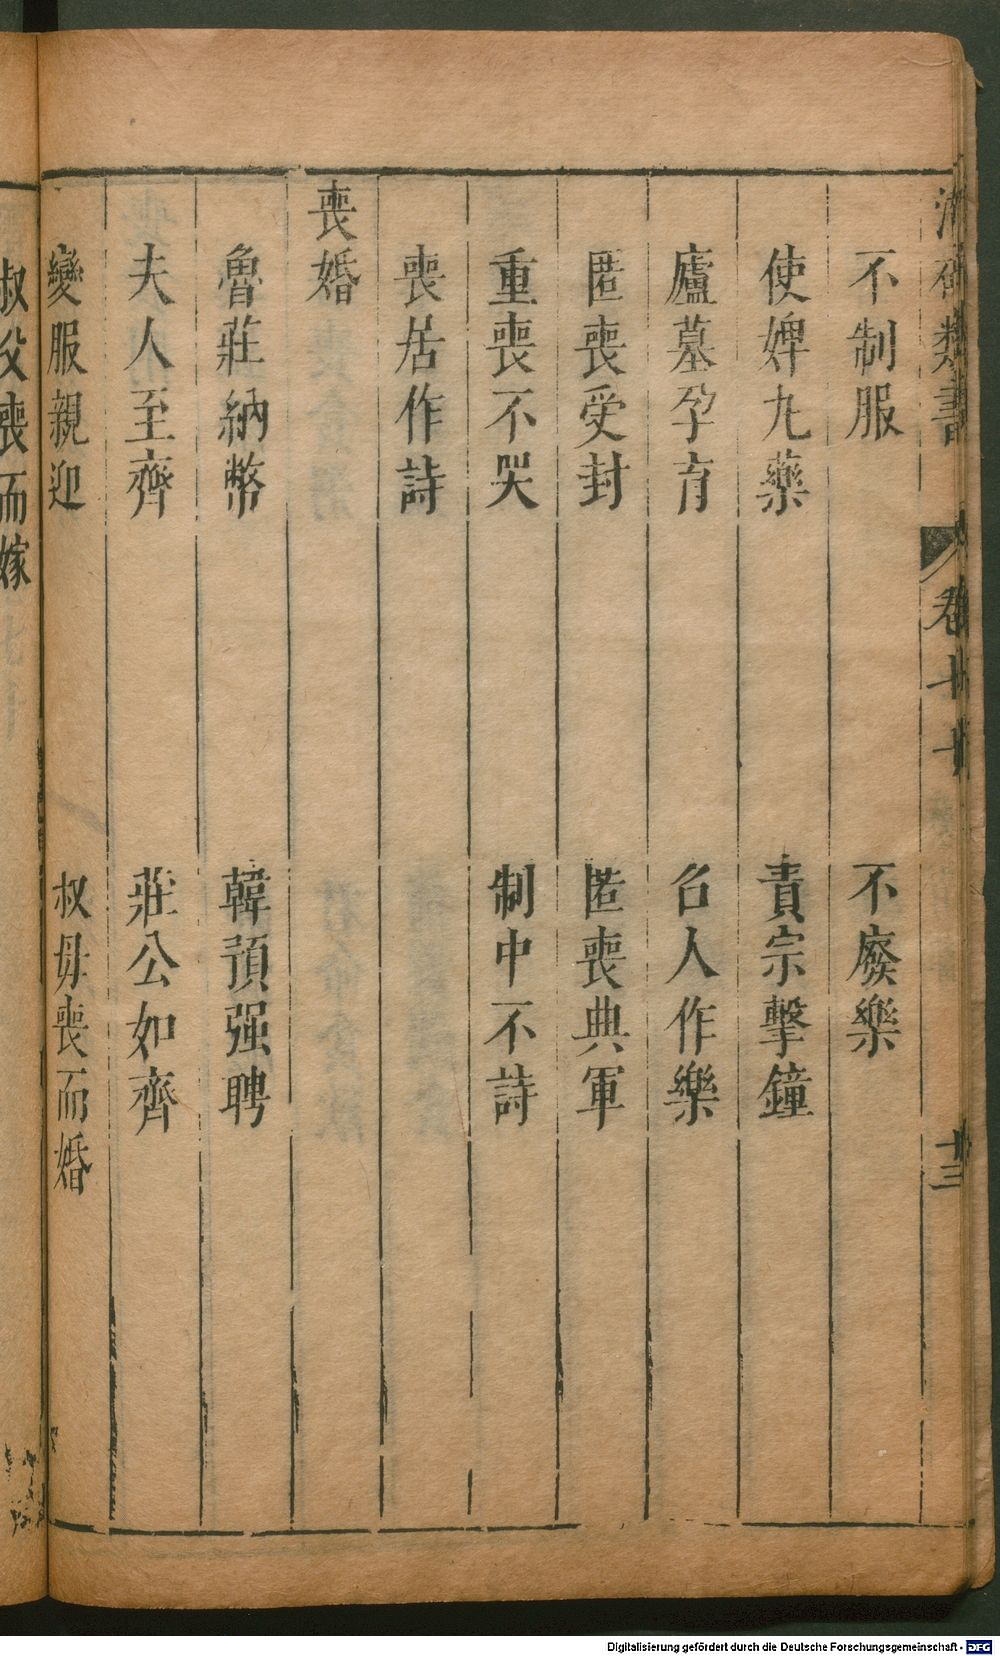 類書 卷十七 十三
不制服 不廢樂
使婢丸藥 責宗擊鐘
廬墓孕育 召人作樂
匿喪受封 匿喪典軍
重喪不哭 制中不詩
喪居作詩
喪婚
魯莊納幣 韓預强聘
夫人至齊 莊公如齊
變服親迎 叔母喪而婚
叔父喪而嫁
Digitalisierung gefördert durch die Deutsche Forschungsgemeinschaft - DFG